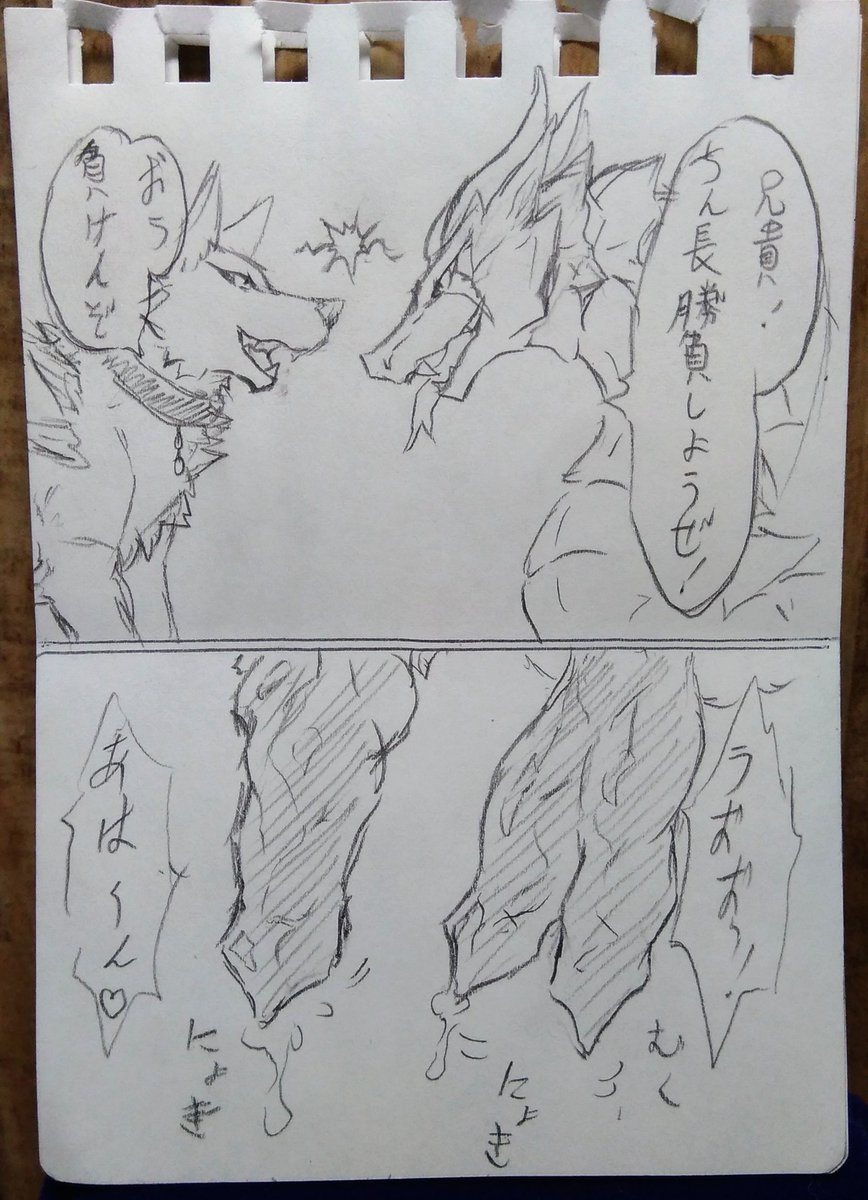 兄貴！
ちん長勝負しようぜ！
おう
負けんぞ
うおおっ！
むく
にょき
あは〜ん♡
にょき